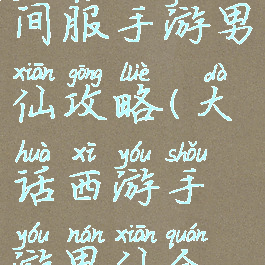 间服手游男
xiān gōng lüè dà
仙攻略(大
huà xī yóu shǒu
话西游手
yóu nán xiān quán
游男仙全